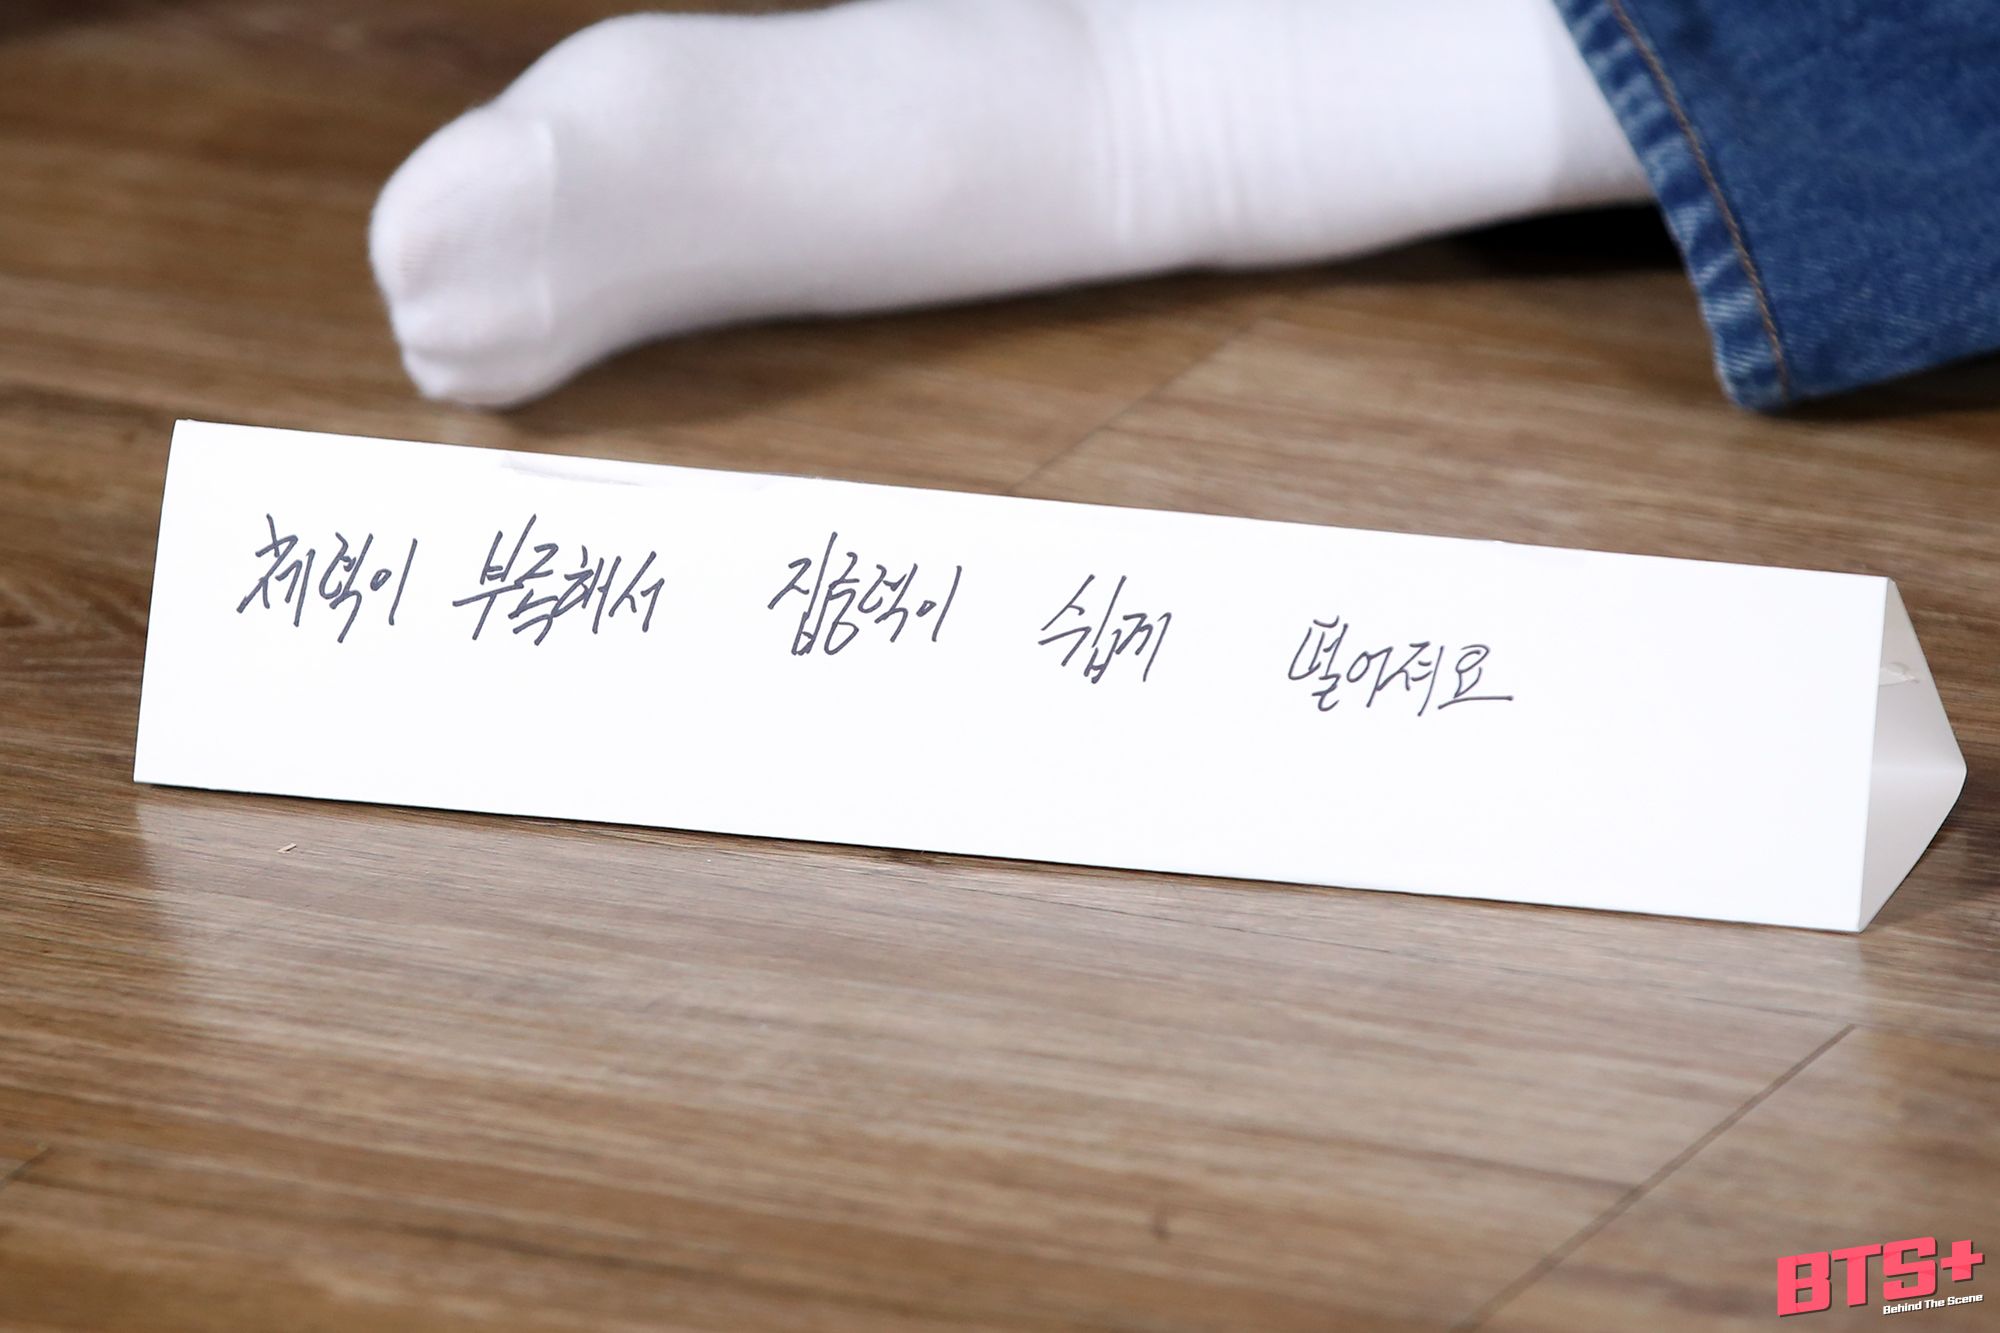 체력이 부족해서 집중력이 쉽게 떨어져요
BTS+
Behind The Scene